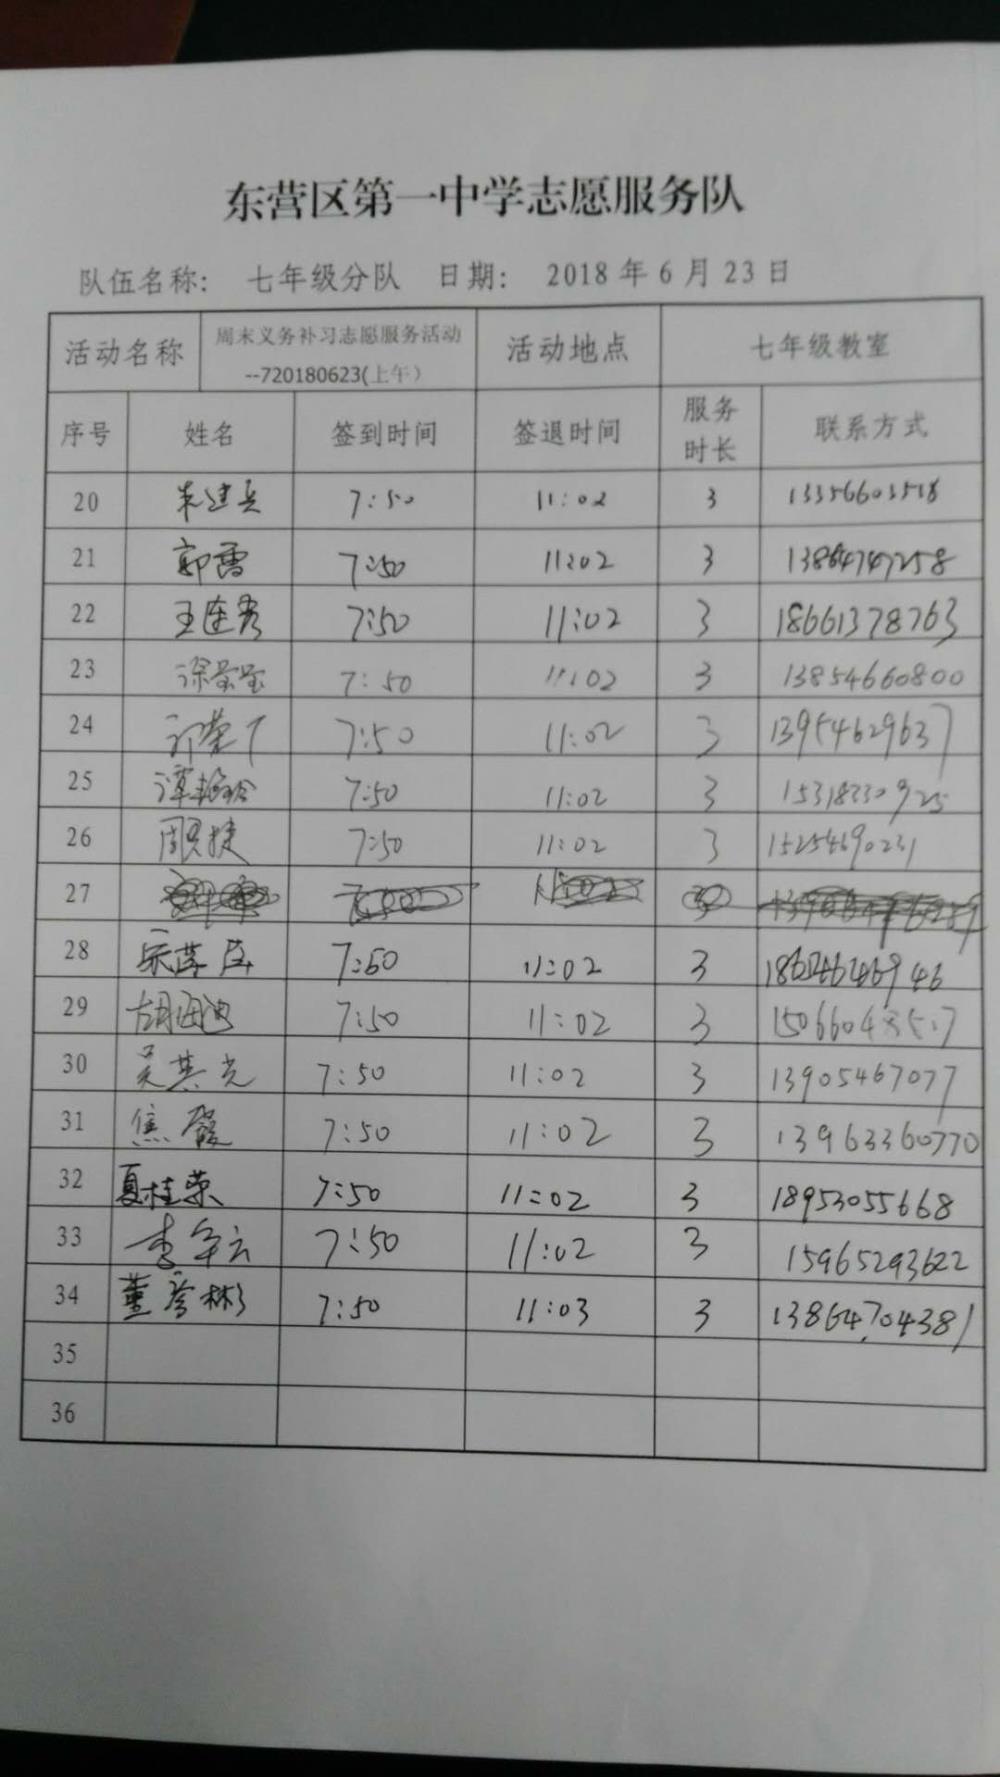 东营区第一中学志愿服务队
队伍名称： 七年级分队 日期： 2018年6月23日
活动名称 周末义务补习志愿服务活动 活动地点 七年级教室
--720180623(上午）
序号 姓名 签到时间 签退时间 服务时长 联系方式
20 朱建兵 7:50 11:02 3 13356603518
21 郭雷 7:50 11:02 3 13864747258
22 王连秀 7:50 11:02 3 18661378763
23 7:50 11:02 3 13854660800
24 7:50 11:02 3 13954629637
25 7:50 11:02 3 15318330925
26 7:50 11:02 3 15254690231
27
28 7:50 11:02 3
29 胡海迪 7:50 11:02 3
30 吴其光 7:50 11:02 3 13905467077
31 焦霞 7:50 11:02 3 13963360770
32 夏桂荣 7:50 11:02 3 18953055668
33 7:50 11:02 3 15965293622
34 董彦彬 7:50 11:03 3 13864704381
35
36